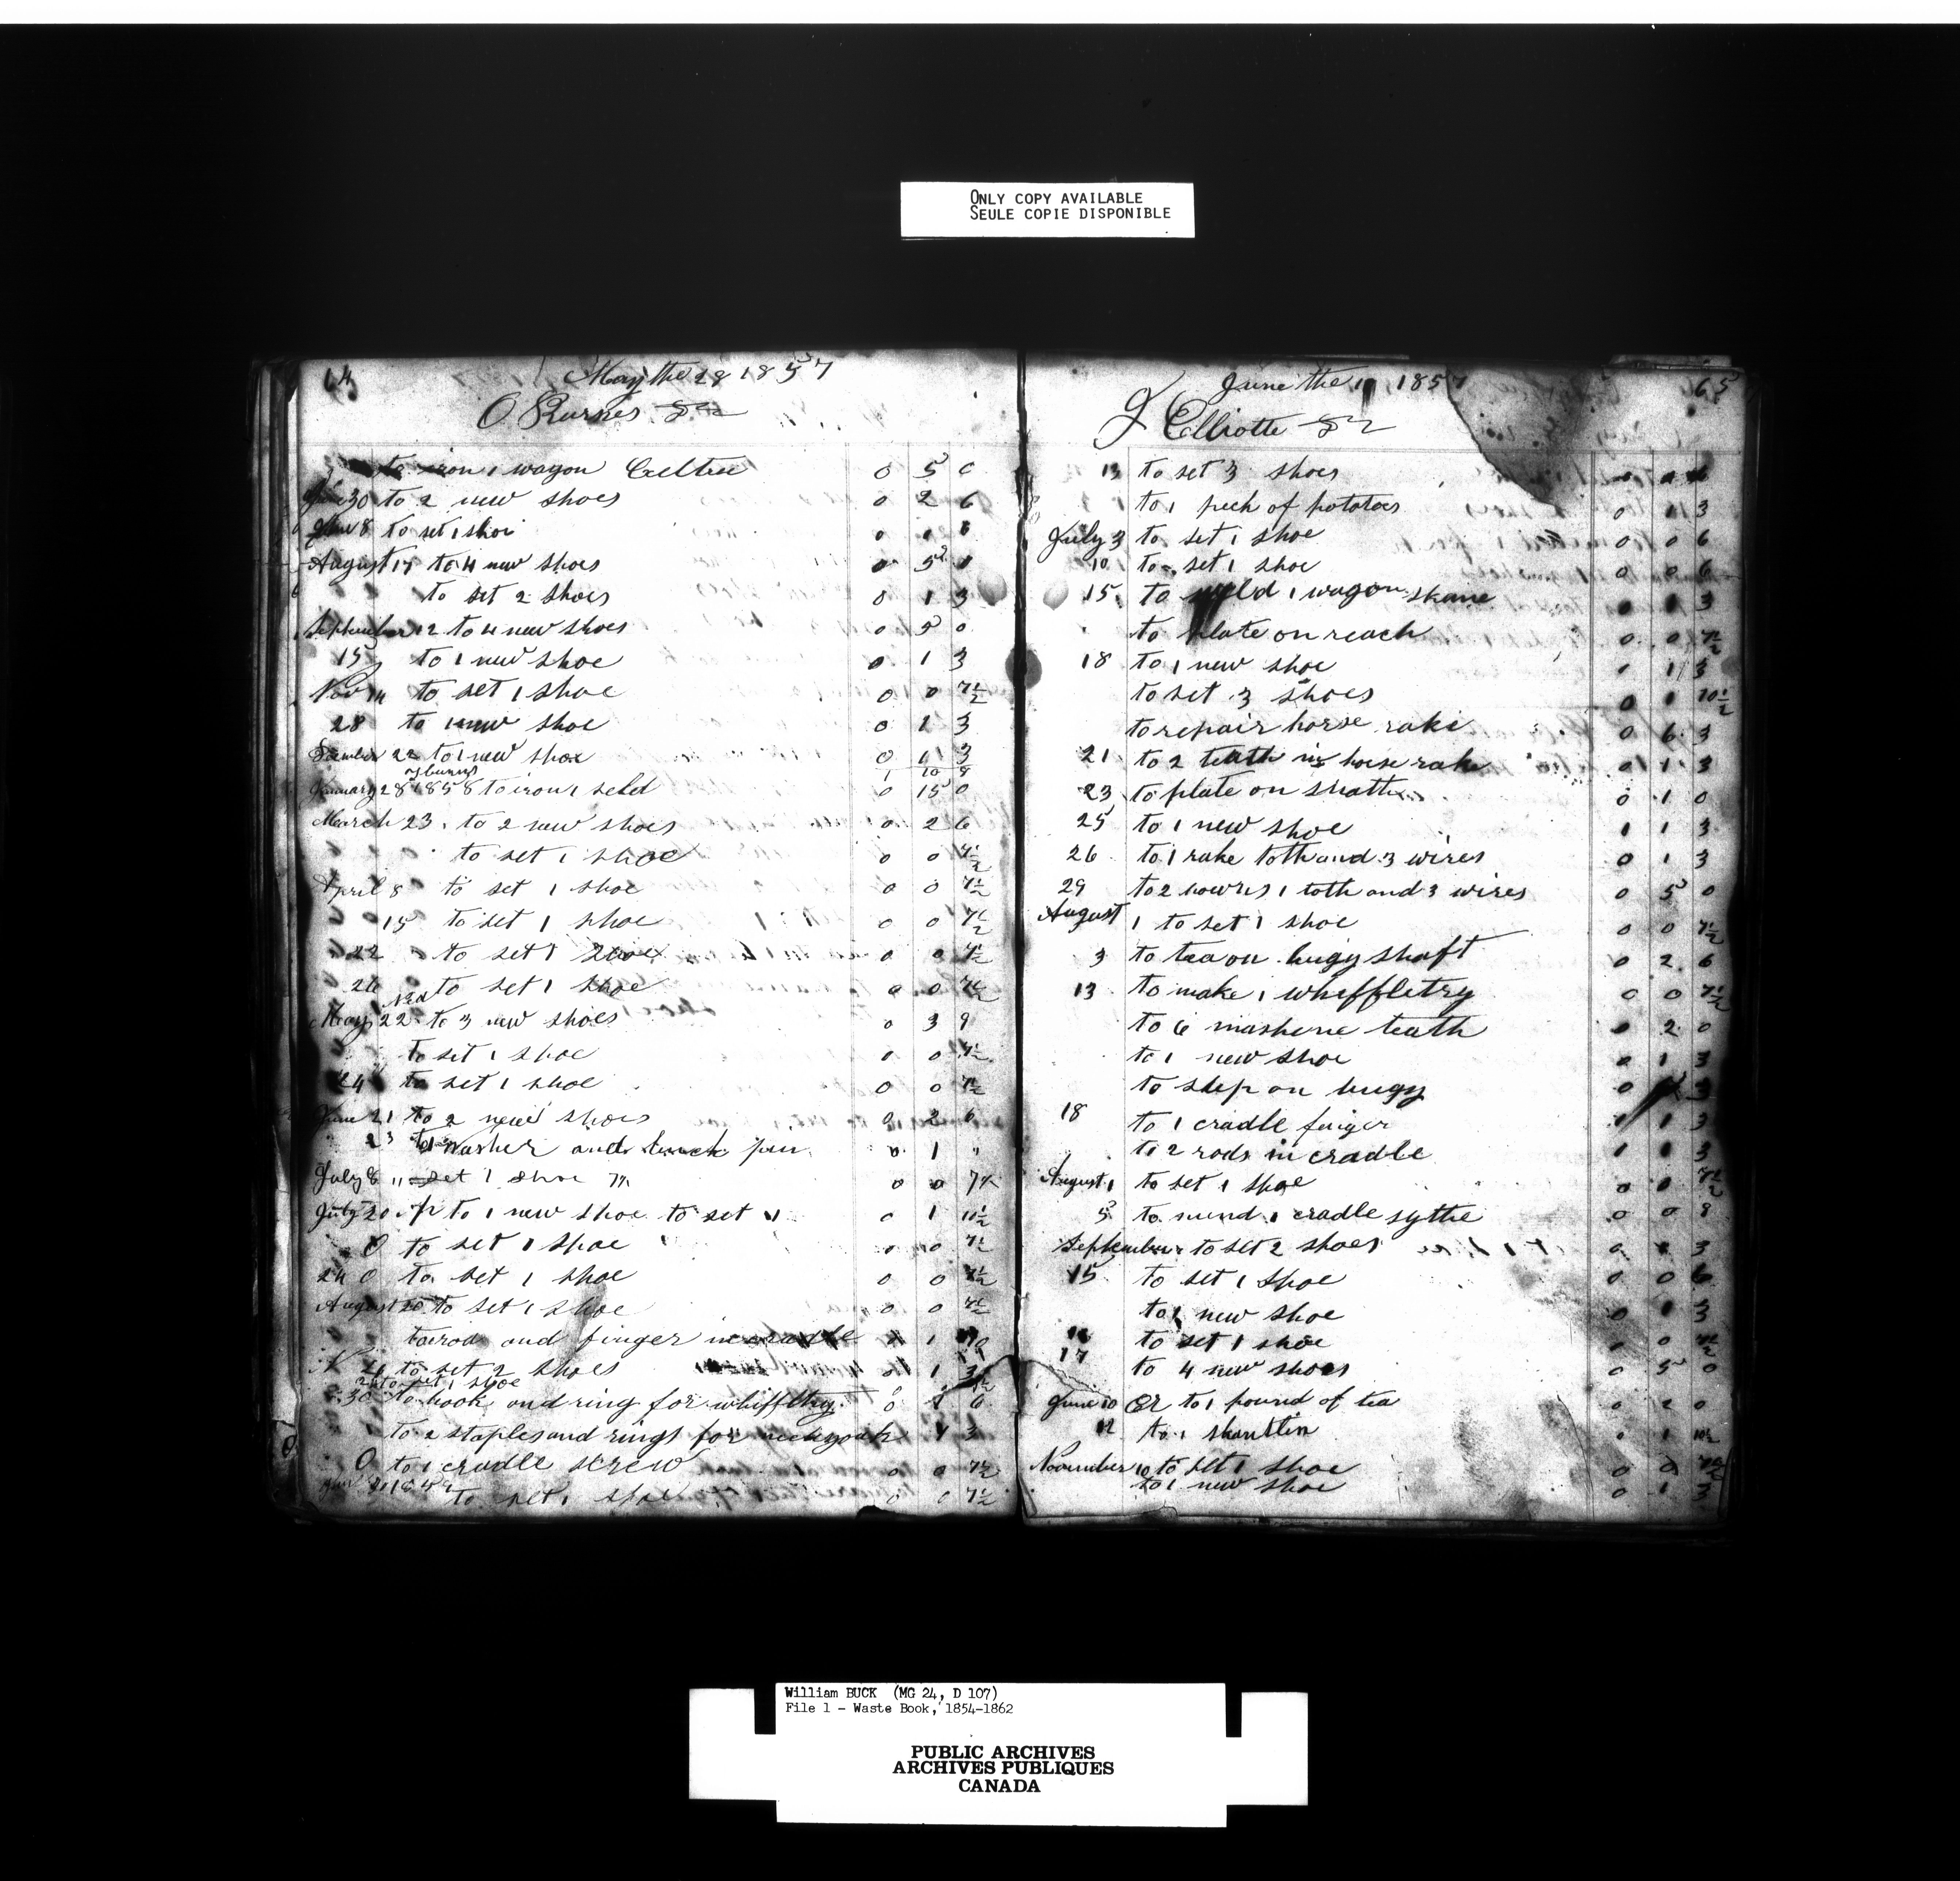 ONLY COPY AVAILABLE
SEULE COPIE DISPONIBLE
64
May the 28 1857
O Burnes Dr
to iron 1 wagon 0 5 0
30 to 2 new shoes 0 2 6
June 8 to set 1 shoe 0 1
August 17 to 4 new shoes 0 5 0
to set 2 shoes 0 1 3
September 12 to 4 new shoes 0 5 0
15 to 1 new shoe 0 1 3
Nov 14 to set 1 shoe 0 0 7½
28 to 1 new shoe 0 1 3
22 to 1 new shoe 0 1 3
1 10
January 28 1858 to iron 1 0 15 0
March 23 to 2 new shoes 0 2 6
to set 1 shoe 0 0 7½
April 8 to set 1 shoe 0 0 7½
15 to set 1 shoe 0 0 7½
22 to set 1 0 0 7½
26 to set 1 shoe 0 0 7½
May 22 to 3 new shoes 0 3 9
to set 1 shoe 0 0 7½
24 to set 1 shoe 0 0 7½
June 21 to 2 new shoes 0 2 6
23 to 1 Washer and pin 0 1 "
July 8 " set 1 shoe 7½ 0 0 7½
July 20 to 1 new shoe to set 1 0 1 10½
O to set 1 shoe 0 0 7½
24 O to set 1 shoe 0 0 7½
August 20 to set 1 shoe 0 0 7½
to rod and finger in cradle 1 10
26 to set 2 shoes 0 1 3
to set 1 shoe
30 to hook and ring for whiffltry 0 1 6
to 2 staples and rings for neckyoak 1 3
O to 1 cradle screw 0 0 7½
to set 1 shoe 0 0 7½
65
June the 11 1857
J Elliotte Dr
13 to set 3 shoes
to 1 peck of potatoes 0 1 3
July 3 to set 1 shoe 0 0 6
10 to set 1 shoe 0 0 6
15 to weld 1 wagon skane 0 1 3
to plate on reach 0 0 7½
18 to 1 new shoe 0 1 3
to set 3 shoes 0 1 10½
to repair horse rake 0 6 3
21 to 2 teath in horse rake 0 1 3
23 to plate on 0 1 0
25 to 1 new shoe 1 1 3
26 to 1 rake toth and 3 wires 0 1 3
29 to 2 1 toth and 3 wires 0 5 0
August 1 to set 1 shoe 0 0 7½
3 to on bugy shaft 0 2 6
13 to make 1 whiffletry 0 0 7½
to 6 mashene teath 0 2 0
to 1 new shoe 0 1 3
to step on bugy 0 3
18 to 1 cradle finger 1 1 3
to 2 rods in cradle 1 1 3
August 1 to set 1 shoe 0 0 7½
5 to mend 1 cradle sythe 0 0 8
September to set 2 shoes 0 1 3
15 to set 1 shoe 0 0 6
to 1 new shoe 0 1 3
to set 1 shoe 0 0 7½
17 to 4 new shoes 0 5 0
June 10 Cr to 1 pound of tea 0 2 0
12 to 1 skantlin 0 1 10½
November 10 to set 1 shoe 0 0 7½
to 1 new shoe 0 1 3
William BUCK (MG 24, D 107)
File 1 - Waste Book, 1854-1862
PUBLIC ARCHIVES
ARCHIVES PUBLIQUES
CANADA